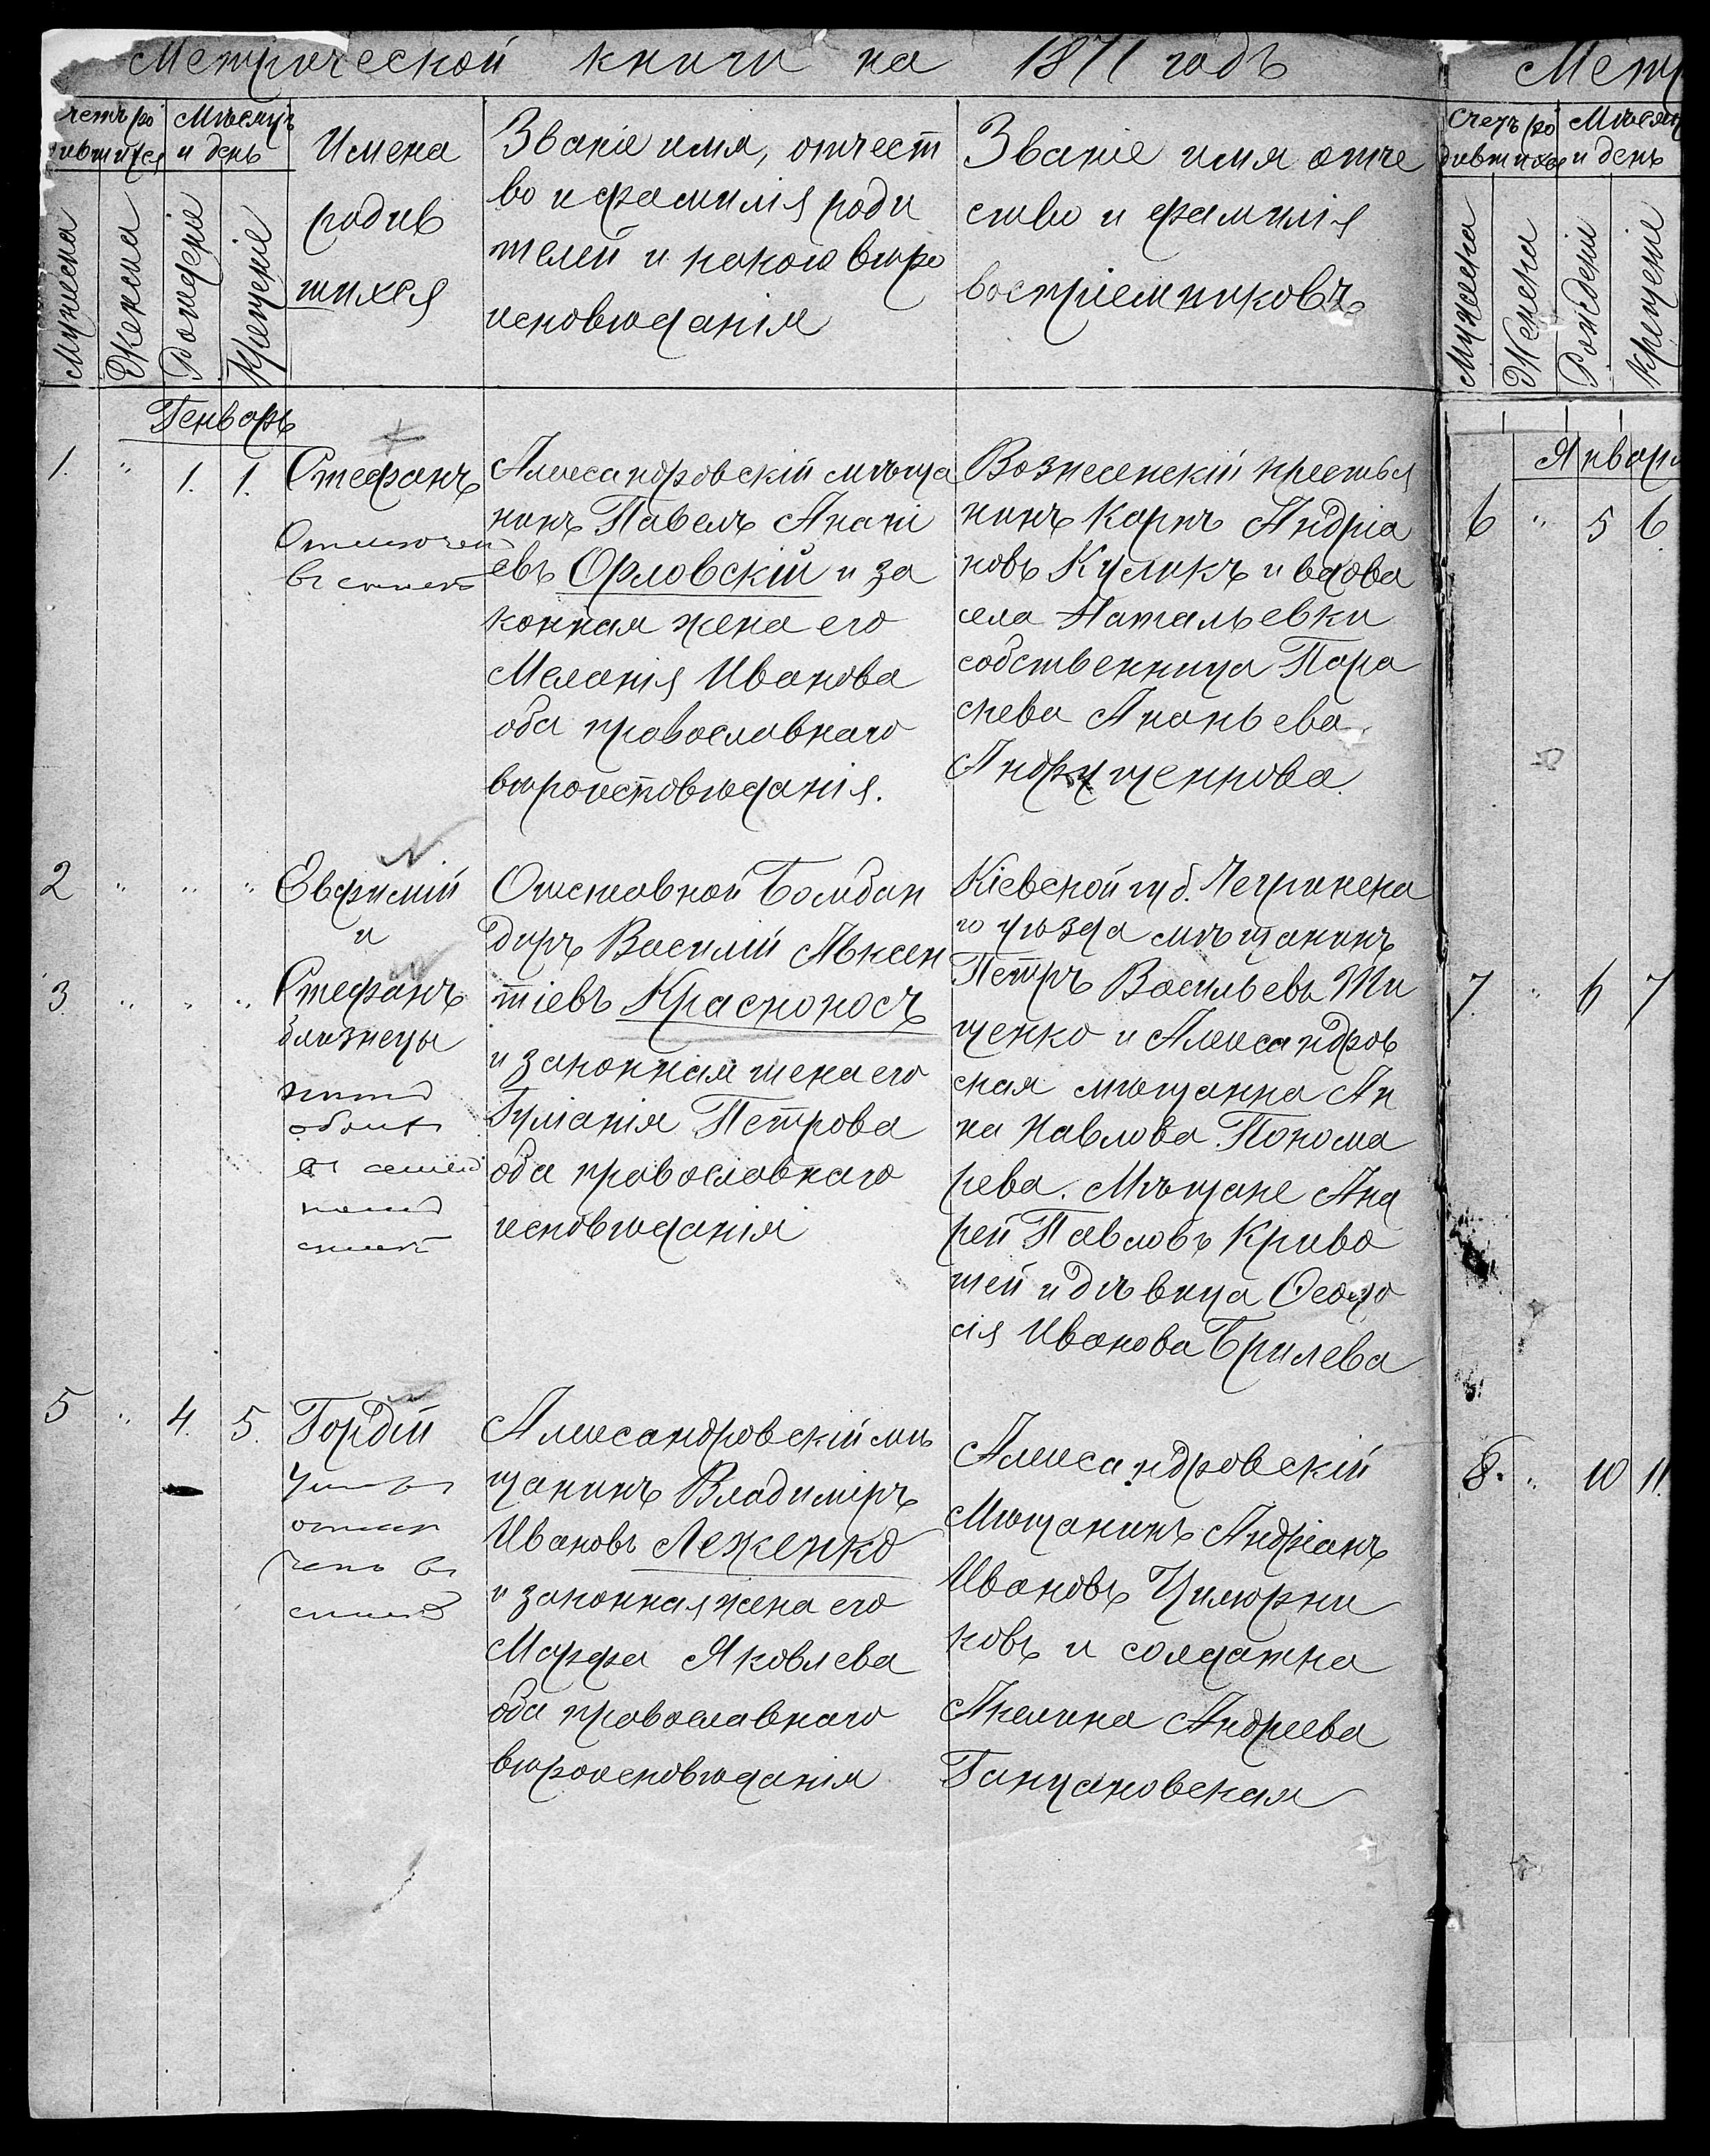 Метрической книги на 1871 годъ
Мѣсяцъ
и день
Мужеска
Женска
Рожденіе
Крещеніе
Имена
родив
шихся
Званіе имя, отчест
во и фамилія роди
телей и какого вѣро
исповѣданія
Званіе имя отче
ство и фамилія
воспріемниковъ
Генварь
1. " 1. 1. Стефанъ
Александровскій мѣща
нинъ Павелъ Анані
евъ Орловскій и за
конная жена его
Меланія Иванова
оба православнаго
вѣроисповѣданія.
Вознесенскій крестья
нинъ Карпъ Андріа
новъ Куликъ и вдова
села Натальевки
собственница Пара
скева Ананьева
Андрущенкова
2 " " " Евфимій
и
3. " " " Стефанъ
близнецы
Отставной Бомбан
диръ Василій Авксен
тіевъ Красноносъ
и законная жена его
Іуліанія Петрова
оба православнаго
исповѣданія
Кіевской губ. Чегринска
го уѣзда мѣщанинъ
Петръ Васильевъ Ти
щенко и Александров
ская мѣщанка Ан
на Павлова Понома
рева. Мѣщане Анд
рей Павловъ Криво
шей и дѣвица Феодо
сія Иванова Брилева
5 " 4. 5. Гордій
Александровскій мѣ
щанинъ Владиміръ
Ивановъ Леженко
и законная жена его
Марфа Яковлева
оба православнаго
вѣроисповѣданія
Александровскій
Мѣщанинъ Андріанъ
Ивановъ Цилюрни
ковъ и солдатка
Акилина Андреева
Ганцановская
Метр
Счетъ ро
дившихся
Мѣсяцъ
и день
Мужеска
Женска
Рожденіе
Крещеніе
Январь
6 " 5 6.
7. " 6 7
8. " 10 11.